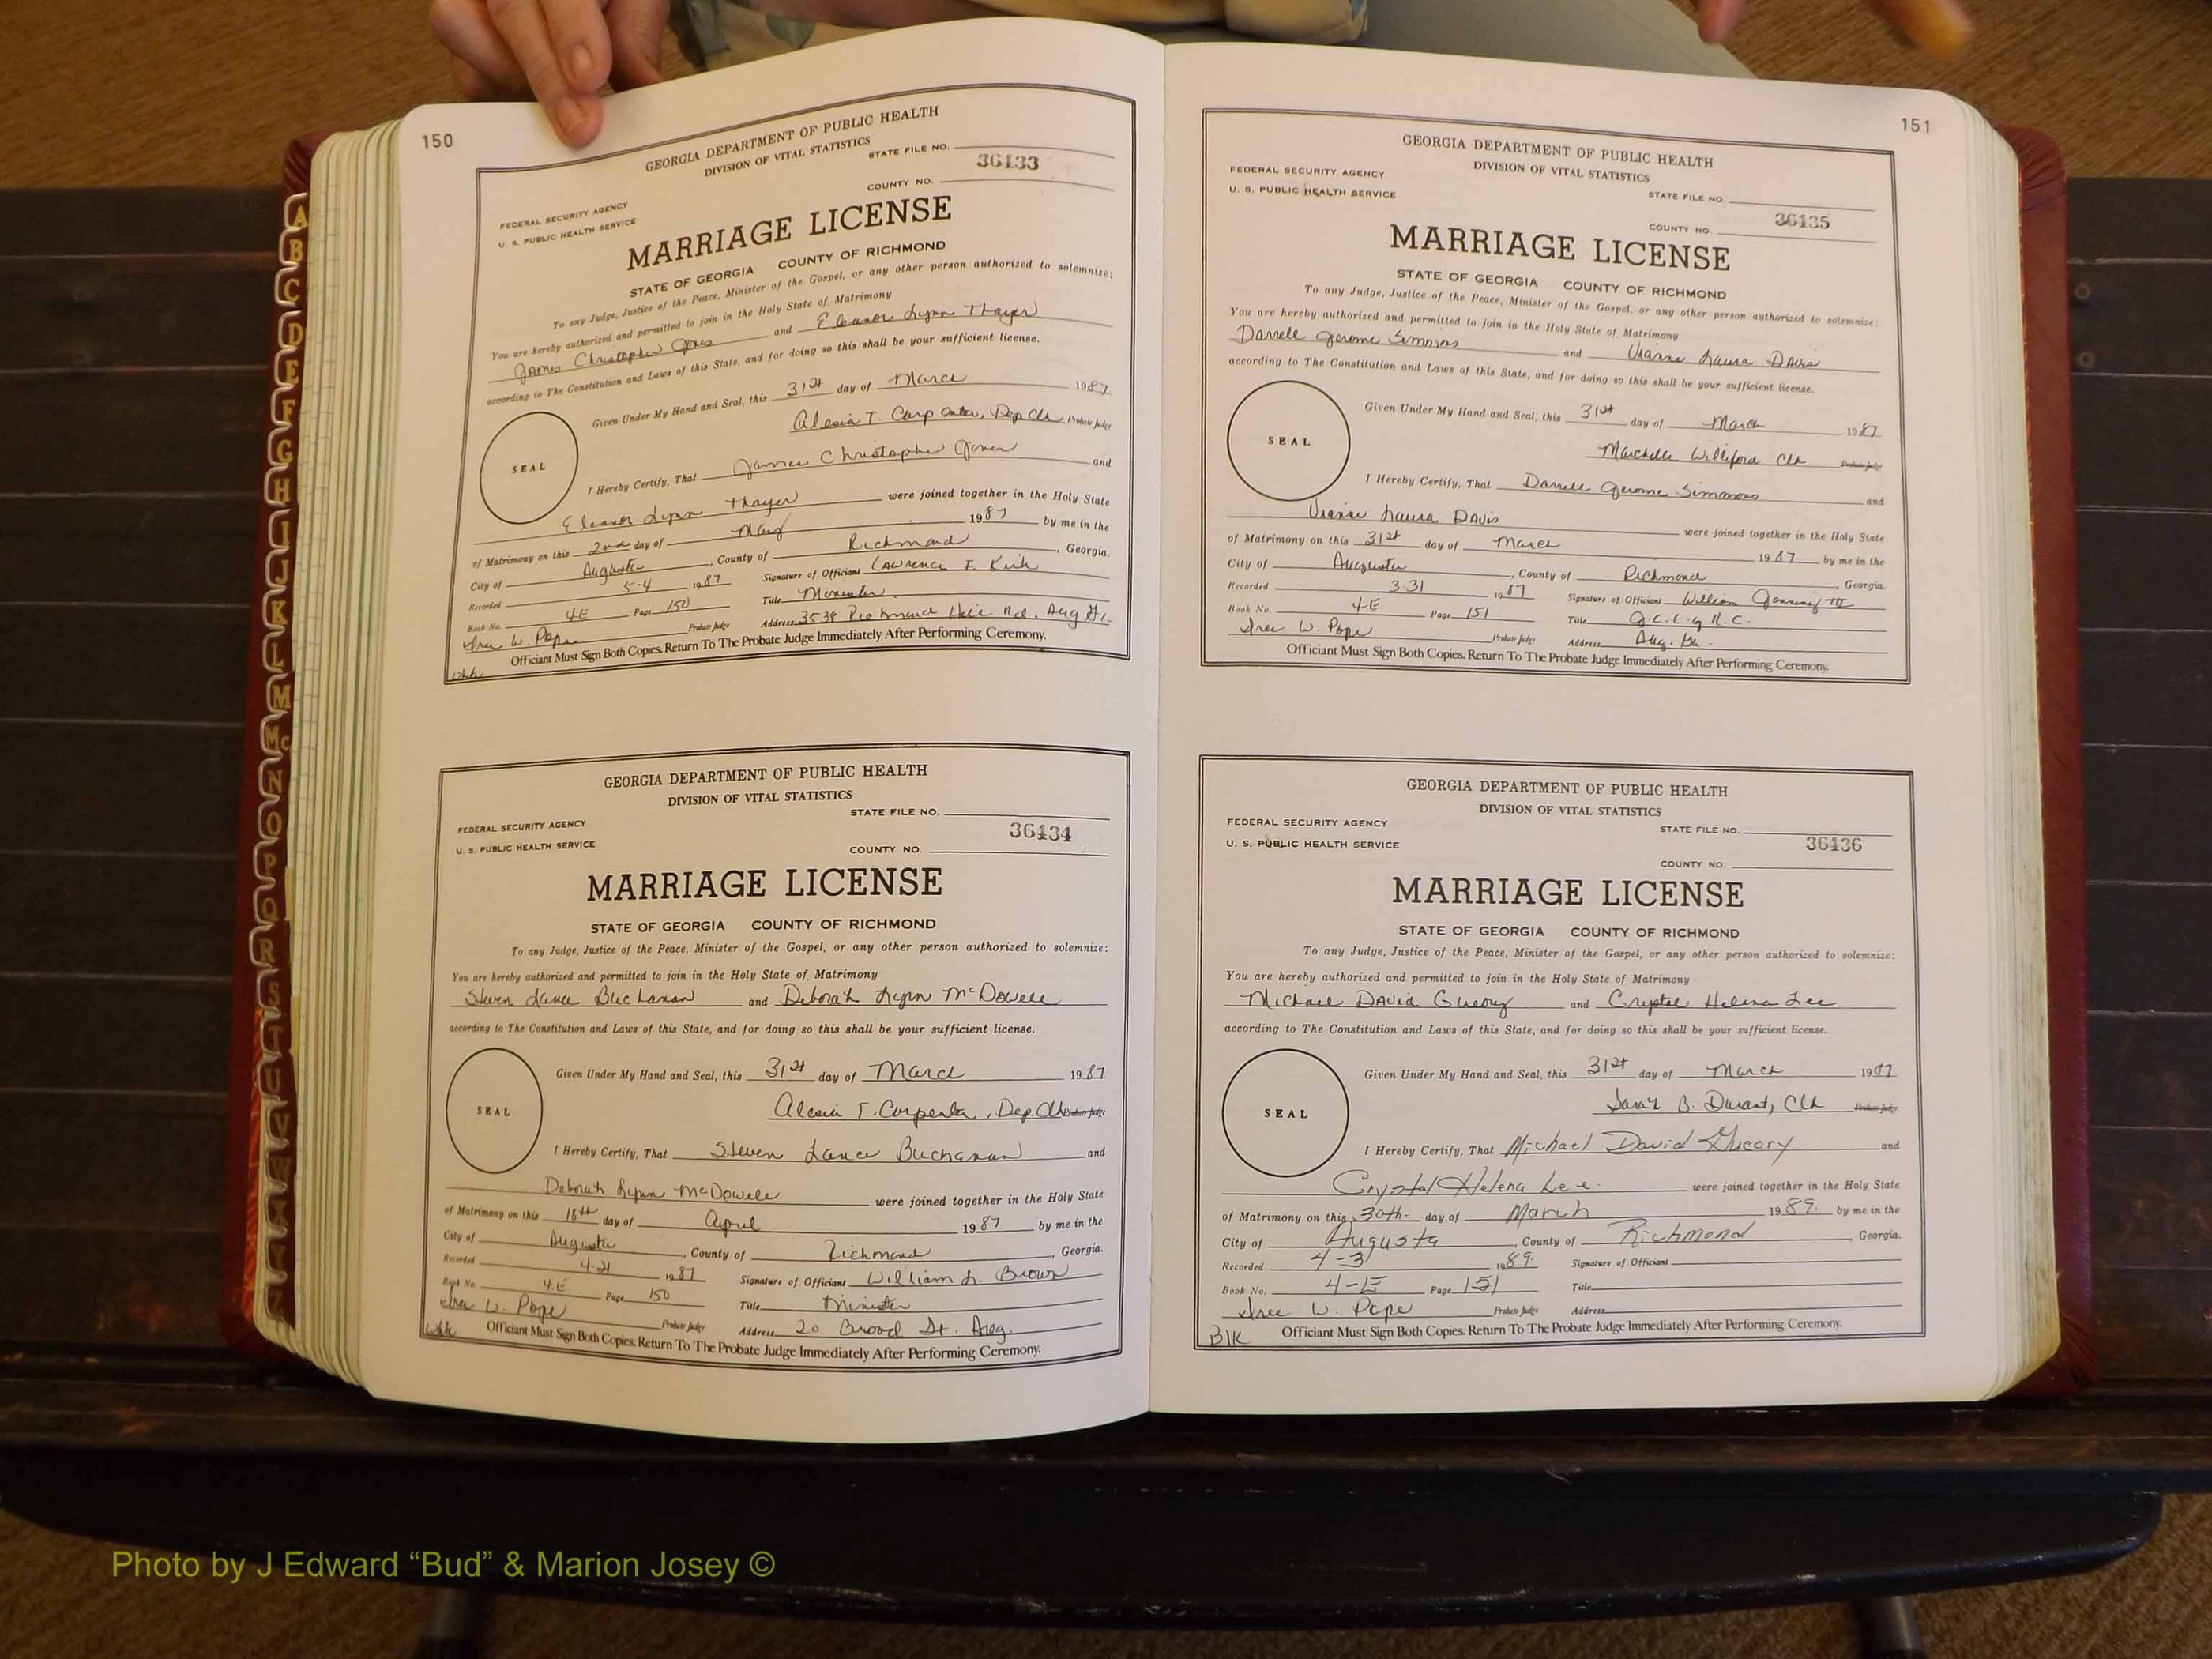 A
B
C
D
E
F
G
H
I
J
K
L
M
Mc
N
O
P
Q
R
S
T
U
V
W
150
GEORGIA DEPARTMENT OF PUBLIC HEALTH
DIVISION OF VITAL STATISTICS
STATE FILE NO.
36133
COUNTY NO.
FEDERAL SECURITY AGENCY
U. S. PUBLIC HEALTH SERVICE
MARRIAGE LICENSE
STATE OF GEORGIA COUNTY OF RICHMOND
To any Judge, Justice of the Peace, Minister of the Gospel, or any other person authorized to solemnize:
You are hereby authorized and permitted to join in the Holy State of Matrimony
James Christopher Jones and Eleanor Lynn Thayer
according to The Constitution and Laws of this State, and for doing so this shall be your sufficient license.
Given Under My Hand and Seal, this 31st day of March 1987
Alesia T. Carpenter, Dep Clk Probate Judge
SEAL
I Hereby Certify, That James Christopher Jones and
Eleanor Lynn Thayer were joined together in the Holy State
of Matrimony on this 2nd day of May 1987 by me in the
City of Augusta, County of Richmond, Georgia.
Recorded 5-4 1987 Signature of Officiant Lawrence F. Kirk
Book No. 4-E Page 150 Title Minister
W. Pope Probate Judge Address 3538 Rd. Aug Ga.
Officiant Must Sign Both Copies. Return To The Probate Judge Immediately After Performing Ceremony.
GEORGIA DEPARTMENT OF PUBLIC HEALTH
DIVISION OF VITAL STATISTICS
STATE FILE NO.
36134
FEDERAL SECURITY AGENCY
U. S. PUBLIC HEALTH SERVICE
COUNTY NO.
MARRIAGE LICENSE
STATE OF GEORGIA COUNTY OF RICHMOND
To any Judge, Justice of the Peace, Minister of the Gospel, or any other person authorized to solemnize:
You are hereby authorized and permitted to join in the Holy State of Matrimony
Steven Lance Buchanan and Deborah Lynn McDowell
according to The Constitution and Laws of this State, and for doing so this shall be your sufficient license.
Given Under My Hand and Seal, this 31st day of March 1987
Alesia T. Carpenter, Dep. Clk Probate Judge
SEAL
I Hereby Certify, That Steven Lance Buchanan and
Deborah Lynn McDowell were joined together in the Holy State
of Matrimony on this 18th day of April 1987 by me in the
City of Augusta, County of Richmond, Georgia.
Recorded 4-21 1987 Signature of Officiant William L. Brown
Book No. 4-E Page 150 Title Minister
W. Pope Probate Judge Address 20 Broad St. Aug.
Officiant Must Sign Both Copies. Return To The Probate Judge Immediately After Performing Ceremony.
151
GEORGIA DEPARTMENT OF PUBLIC HEALTH
DIVISION OF VITAL STATISTICS
FEDERAL SECURITY AGENCY
U. S. PUBLIC HEALTH SERVICE
STATE FILE NO.
36135
COUNTY NO.
MARRIAGE LICENSE
STATE OF GEORGIA COUNTY OF RICHMOND
To any Judge, Justice of the Peace, Minister of the Gospel, or any other person authorized to solemnize:
You are hereby authorized and permitted to join in the Holy State of Matrimony
Darrell Jerome Simmons and Laura Davis
according to The Constitution and Laws of this State, and for doing so this shall be your sufficient license.
Given Under My Hand and Seal, this 31st day of March 1987
Marchelle Williford Clk Probate Judge
SEAL
I Hereby Certify, That Darrell Jerome Simmons and
Laura Davis were joined together in the Holy State
of Matrimony on this 31st day of March 1987 by me in the
City of Augusta, County of Richmond, Georgia.
Recorded 3-31 1987 Signature of Officiant William Jennings III
Book No. 4-E Page 151 Title J.C.C. of R.C.
W. Pope Probate Judge Address Aug. Ga.
Officiant Must Sign Both Copies. Return To The Probate Judge Immediately After Performing Ceremony.
GEORGIA DEPARTMENT OF PUBLIC HEALTH
DIVISION OF VITAL STATISTICS
FEDERAL SECURITY AGENCY
U. S. PUBLIC HEALTH SERVICE
STATE FILE NO.
36136
COUNTY NO.
MARRIAGE LICENSE
STATE OF GEORGIA COUNTY OF RICHMOND
To any Judge, Justice of the Peace, Minister of the Gospel, or any other person authorized to solemnize:
You are hereby authorized and permitted to join in the Holy State of Matrimony
Michael David and Crystal Helena Lee
according to The Constitution and Laws of this State, and for doing so this shall be your sufficient license.
Given Under My Hand and Seal, this 31st day of March 1987
Sarah B. Durant, Clk Probate Judge
SEAL
I Hereby Certify, That Michael David and
Crystal Helena Lee. were joined together in the Holy State
of Matrimony on this 30th day of March 1989. by me in the
City of Augusta, County of Richmond, Georgia.
Recorded 4-3 1989. Signature of Officiant
Book No. 4-E Page 151 Title
W. Pope Probate Judge Address
Blk Officiant Must Sign Both Copies. Return To The Probate Judge Immediately After Performing Ceremony.
Photo by J Edward “Bud” & Marion Josey ©